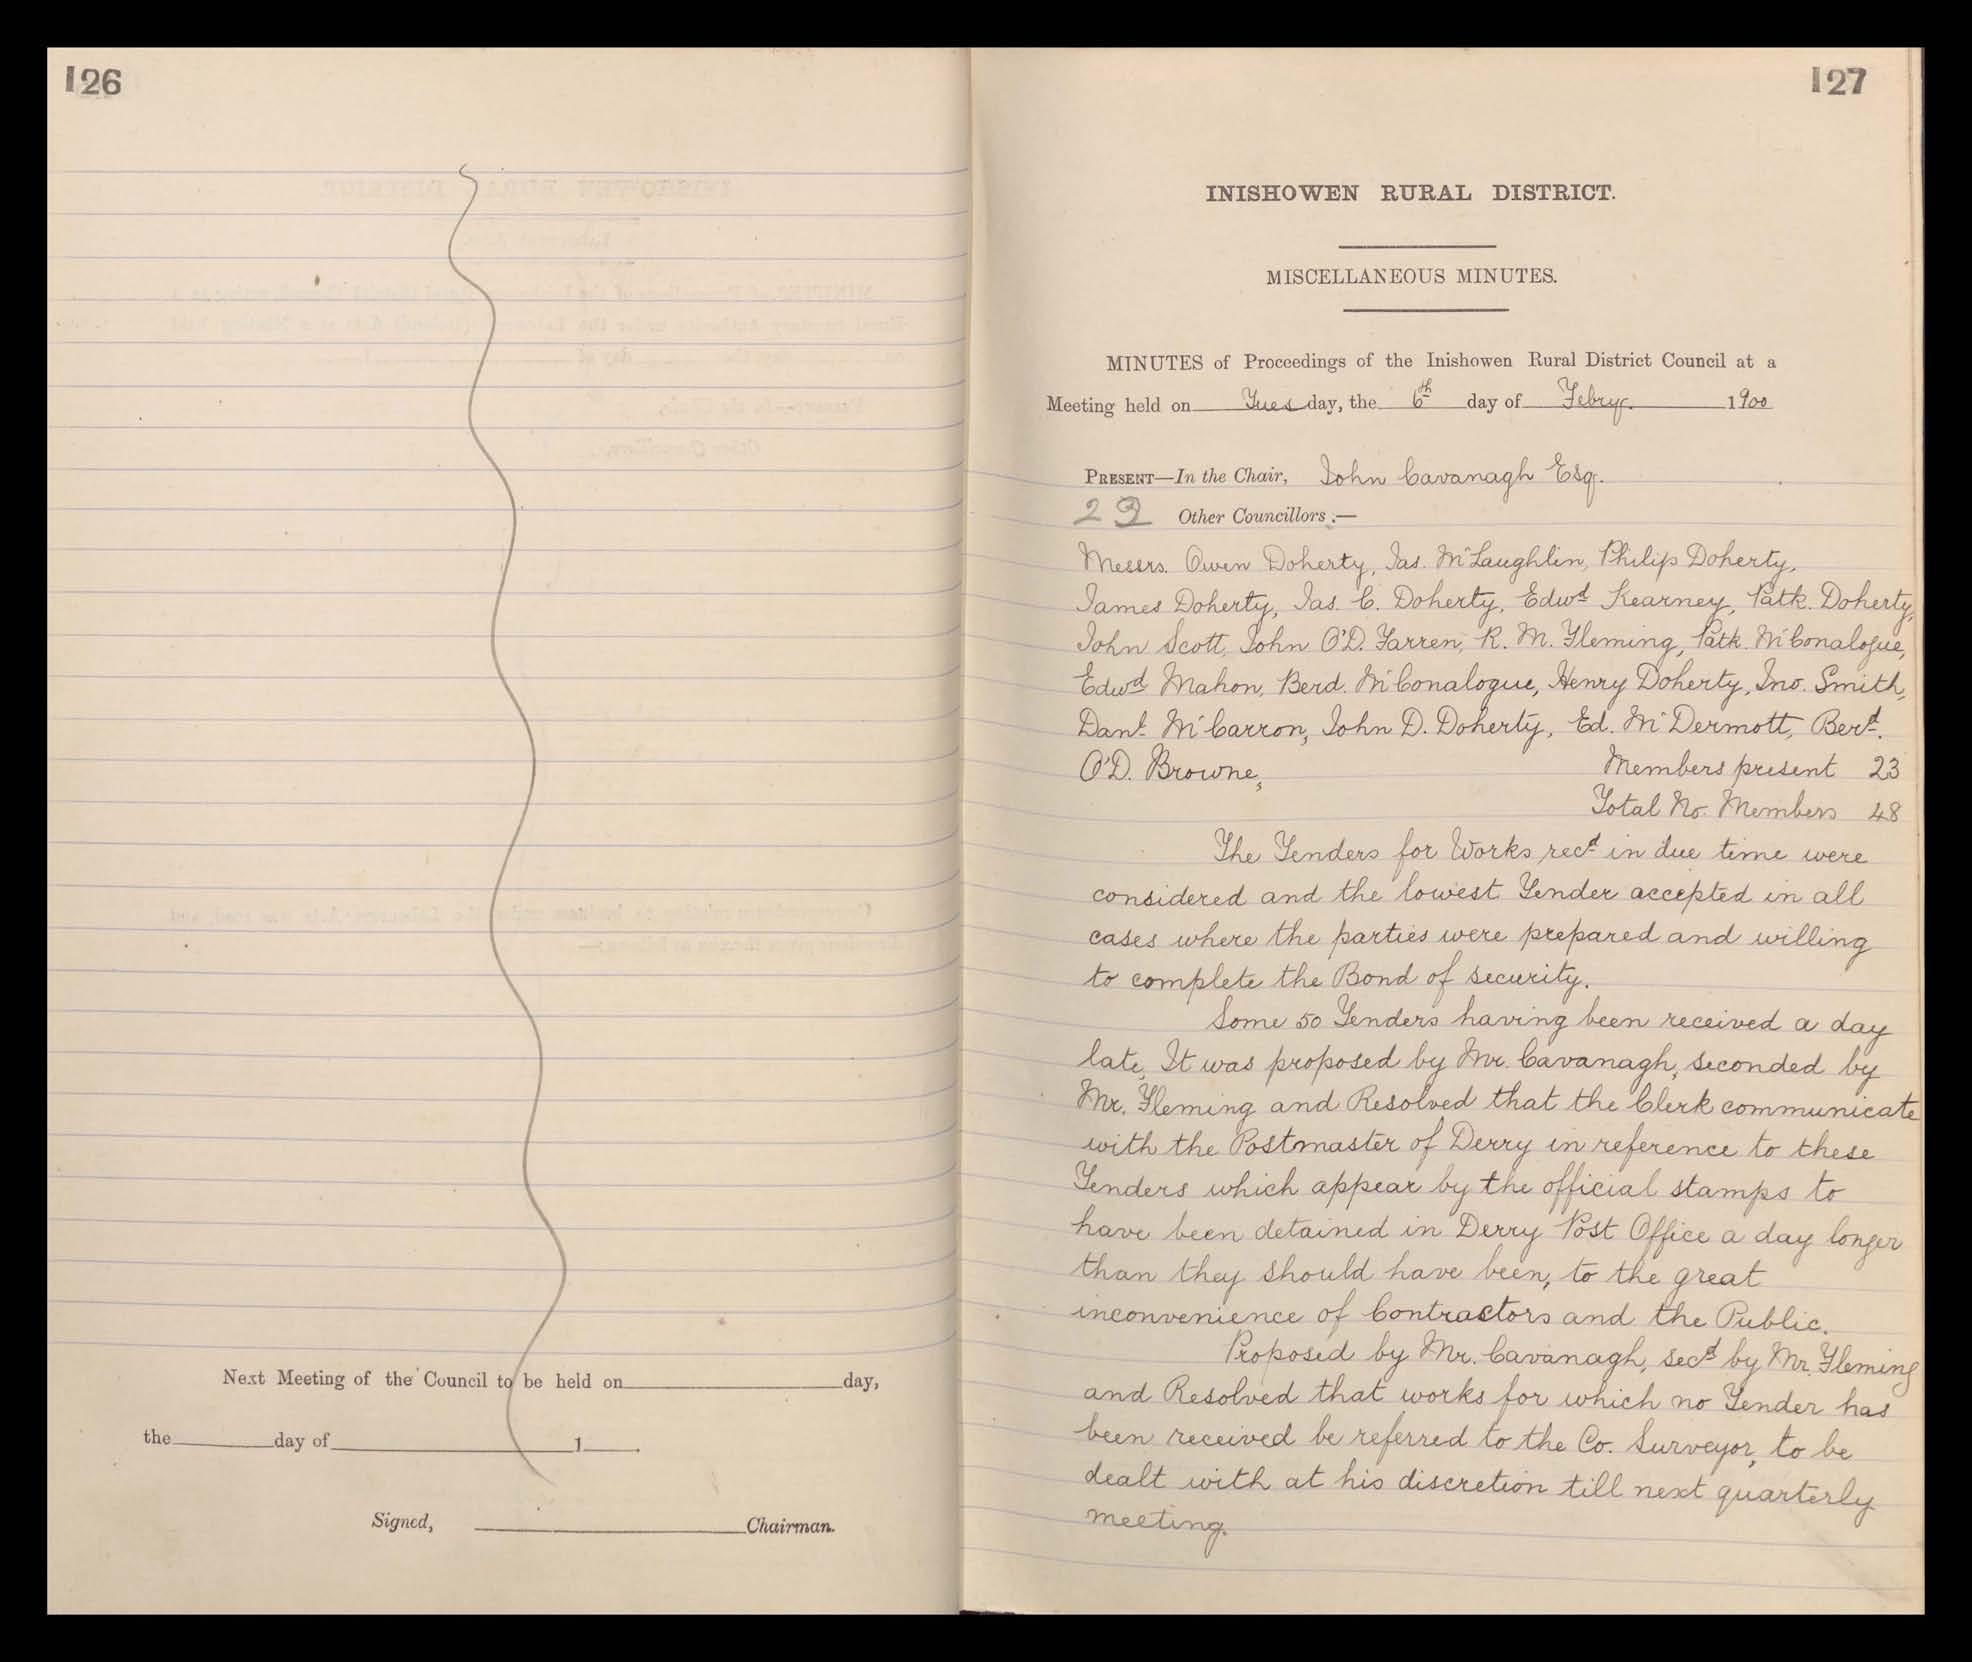 126
Next Meeting of the Council to be held on day,
the day of 1 .
Signed, Chairman.
127
INISHOWEN RURAL DISTRICT.
MISCELLANEOUS MINUTES.
MINUTES of Proceedings of the Inishowen Rural District Council at a
Meeting held on Tuesday, the 6th day of Febry. 1900
PRESENT—In the Chair, John Cavanagh Esq.
Other Councillors:—
Messrs. Owen Doherty, Jas. McLaughlin, Philip Doherty,
James Doherty, Jas. C. Doherty, Edwd Kearney, Patk. Doherty,
John Scott, John O'D. Farren, R. M. Fleming, Patk. McConalogue,
Edwd Mahon, Berd. McConalogue, Henry Doherty, Jno. Smith,
Danl. McCarron, John D. Doherty, Ed. McDermott, Berd.
O'D. Browne, Members present 23
Total No. Members 48
The Tenders for Works recd in due time were
considered and the lowest Tender accepted in all
cases where the parties were prepared and willing
to complete the Bond of security.
Some 50 Tenders having been received a day
late, It was proposed by Mr. Cavanagh, seconded by
Mr. Fleming and Resolved that the Clerk communicate
with the Postmaster of Derry in reference to these
Tenders which appear by the official stamps to
have been detained in Derry Post Office a day longer
than they should have been, to the great
inconvenience of Contractors and the Public.
Proposed by Mr. Cavanagh, secd by Mr. Fleming
and Resolved that works for which no Tender has
been received be referred to the Co. Surveyor, to be
dealt with at his discretion till next quarterly
meeting.